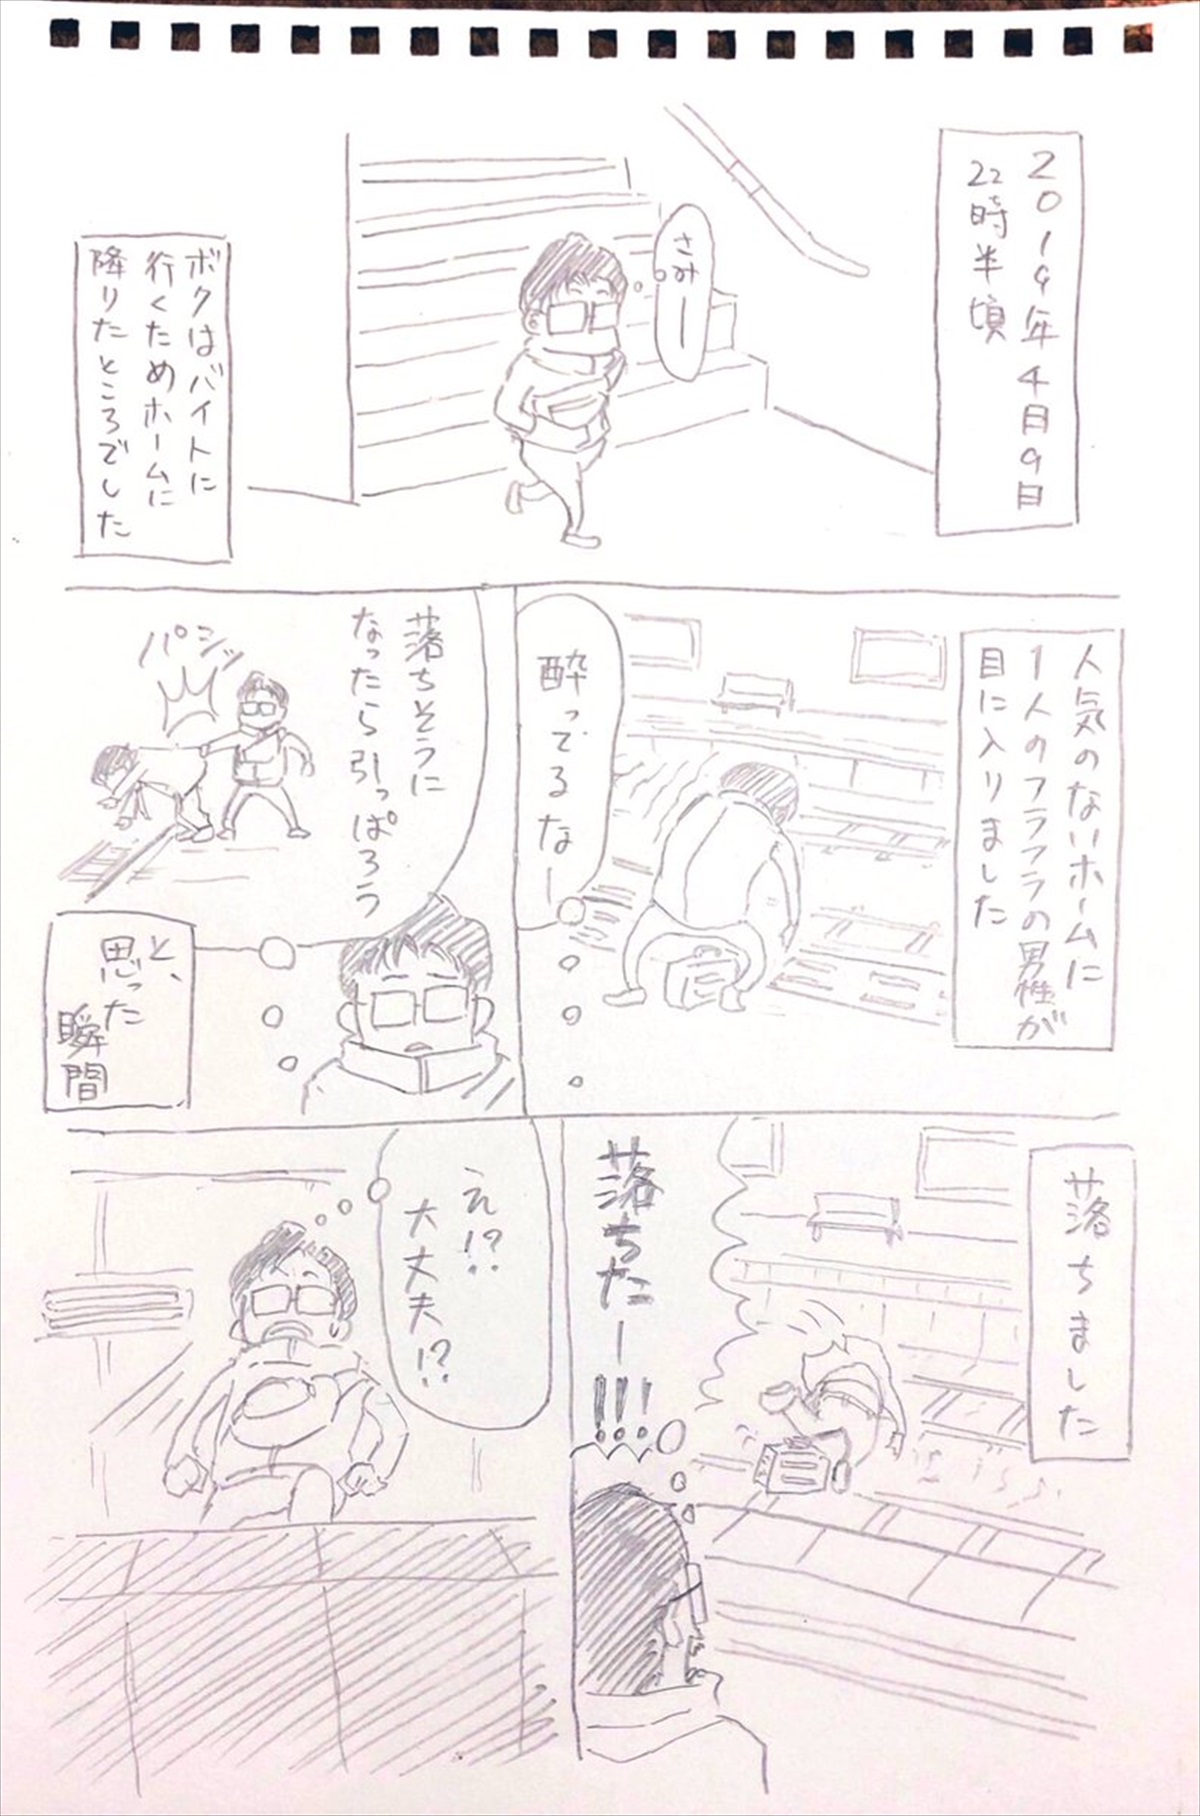 2019年4月9日
22時半頃
さみー
ボクはバイトに
行くためホームに
降りたところでした
人気のないホームに
1人のフラフラの男性が
目に入りました
酔ってるなー
落ちそうに
なったら引っぱろう
パシッ
と、
思った
瞬間
落ちました
落ちたー!!!
え!?
大丈夫!?